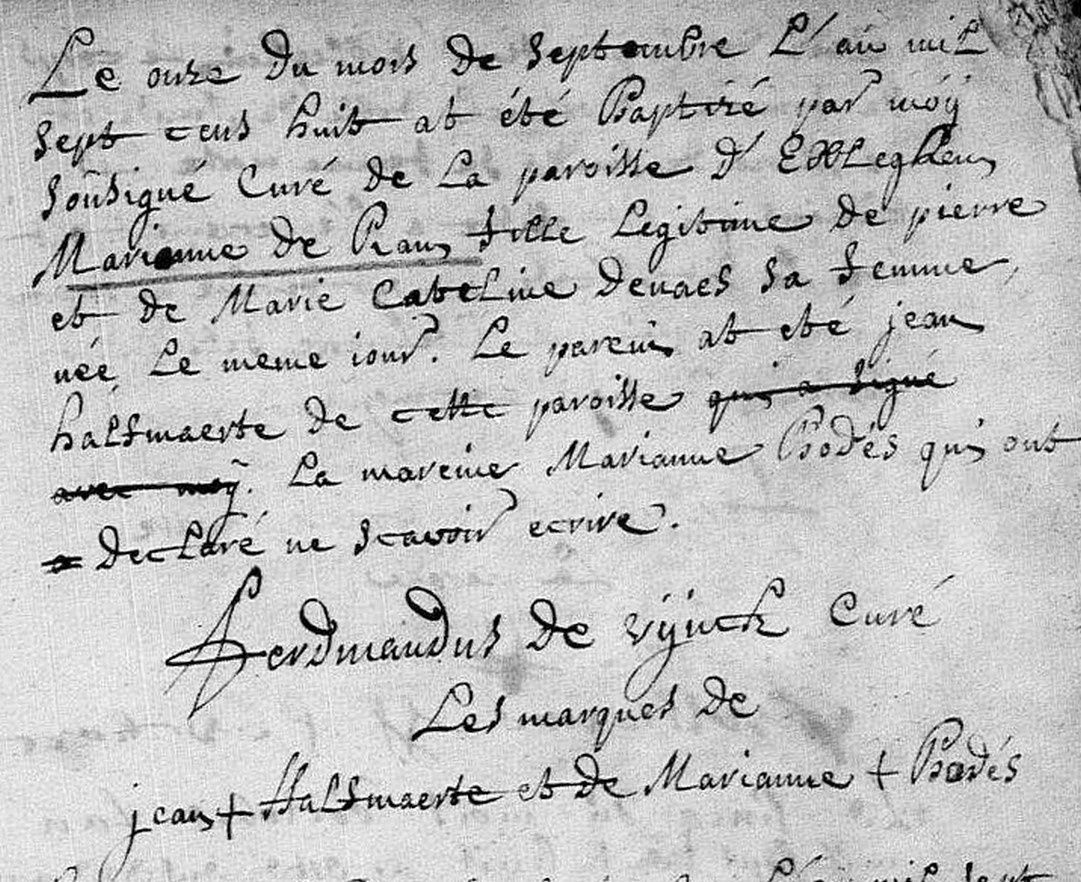 Le onze du mois de Septembre L'an mil
sept cens huit at été Baptizé par moÿ
soûsigné Curé de La paroisse d'Exleghem
Marianne de Pram fille Legitime de pierre
et de Marie Cateline devaes sa femme,
née Le meme iour. Le parein at eté jean
halsmaerte de cette paroisse qui a signé
avec moÿ. La mareine Marianne Bodés qui ont
a declaré ne scavoir ecrire.
Ferdinandus de vÿnck Curé
Les marques de
jean + Halsmaerte et de Marianne + Bodés